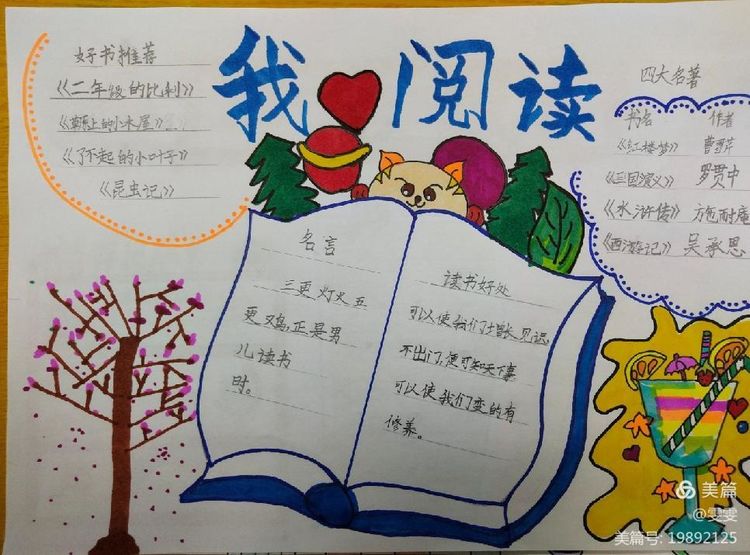 我 阅读
好书推荐
《二年级的比利》
《草原上的小木屋》
《了不起的小叶子》
《昆虫记》
四大名著
书名 作者
《红楼梦》 曹雪芹
《三国演义》 罗贯中
《水浒传》 施耐庵
《西游记》 吴承恩
名言
三更灯火五
更鸡,正是男
儿读书
时。
读书好处
可以使我们增长见识,
不出门,便可知天下事
可以使我们变的有
修养。
美篇
@雯雯
美篇号: 19892125